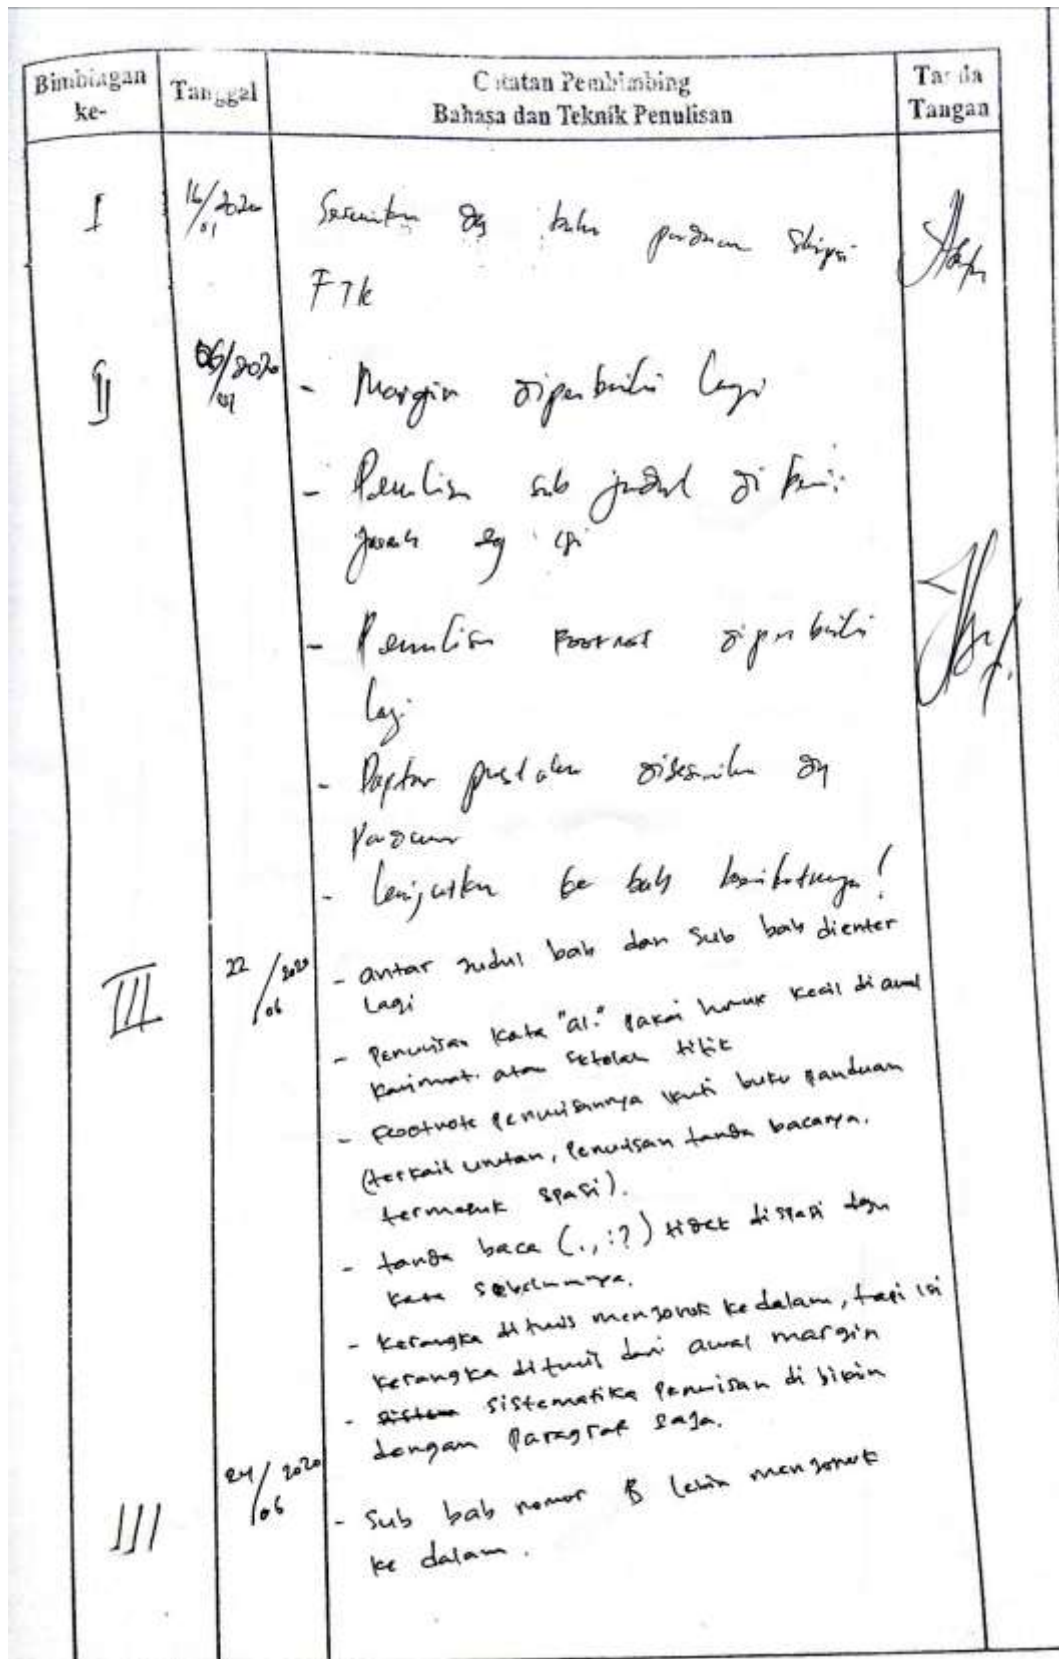 Bimbingan ke-
Tanggal
Catatan Pembimbing
Bahasa dan Teknik Penulisan
Tanda Tangan
I
16/2020
/01
Sesuaikan dg buku panduan skripsi
FTK
II
06/2020
- Margin diperbaiki lagi
- Penulisan sub judul di
dg isi
- Penulisan Footnot diperbaiki
lagi
- Daptar pustaka disesuaikan dg
Panduan
- Lanjutkan ke bab berikutnya!
III
22/2020
/06
- antar judul bab dan Sub bab dienter
Lagi
- Penulisan kata "al." pakai huruf kecil di awal
kalimat. atau setelah titik
- Footnote penulisannya ikuti buku panduan
(terkait urutan, Penulisan tanda bacanya.
termasuk spasi).
- tanda baca (.,:?) tidak dispasi dgn
kata sebelumnya.
- kerangka ditulis menjorok kedalam, tapi isi
kerangka ditulis dari awal margin
- sistematika penulisan di bikin
dengan Paragraf saja.
III
24/2020
/06
- Sub bab nomor B lebih menjorok
ke dalam.